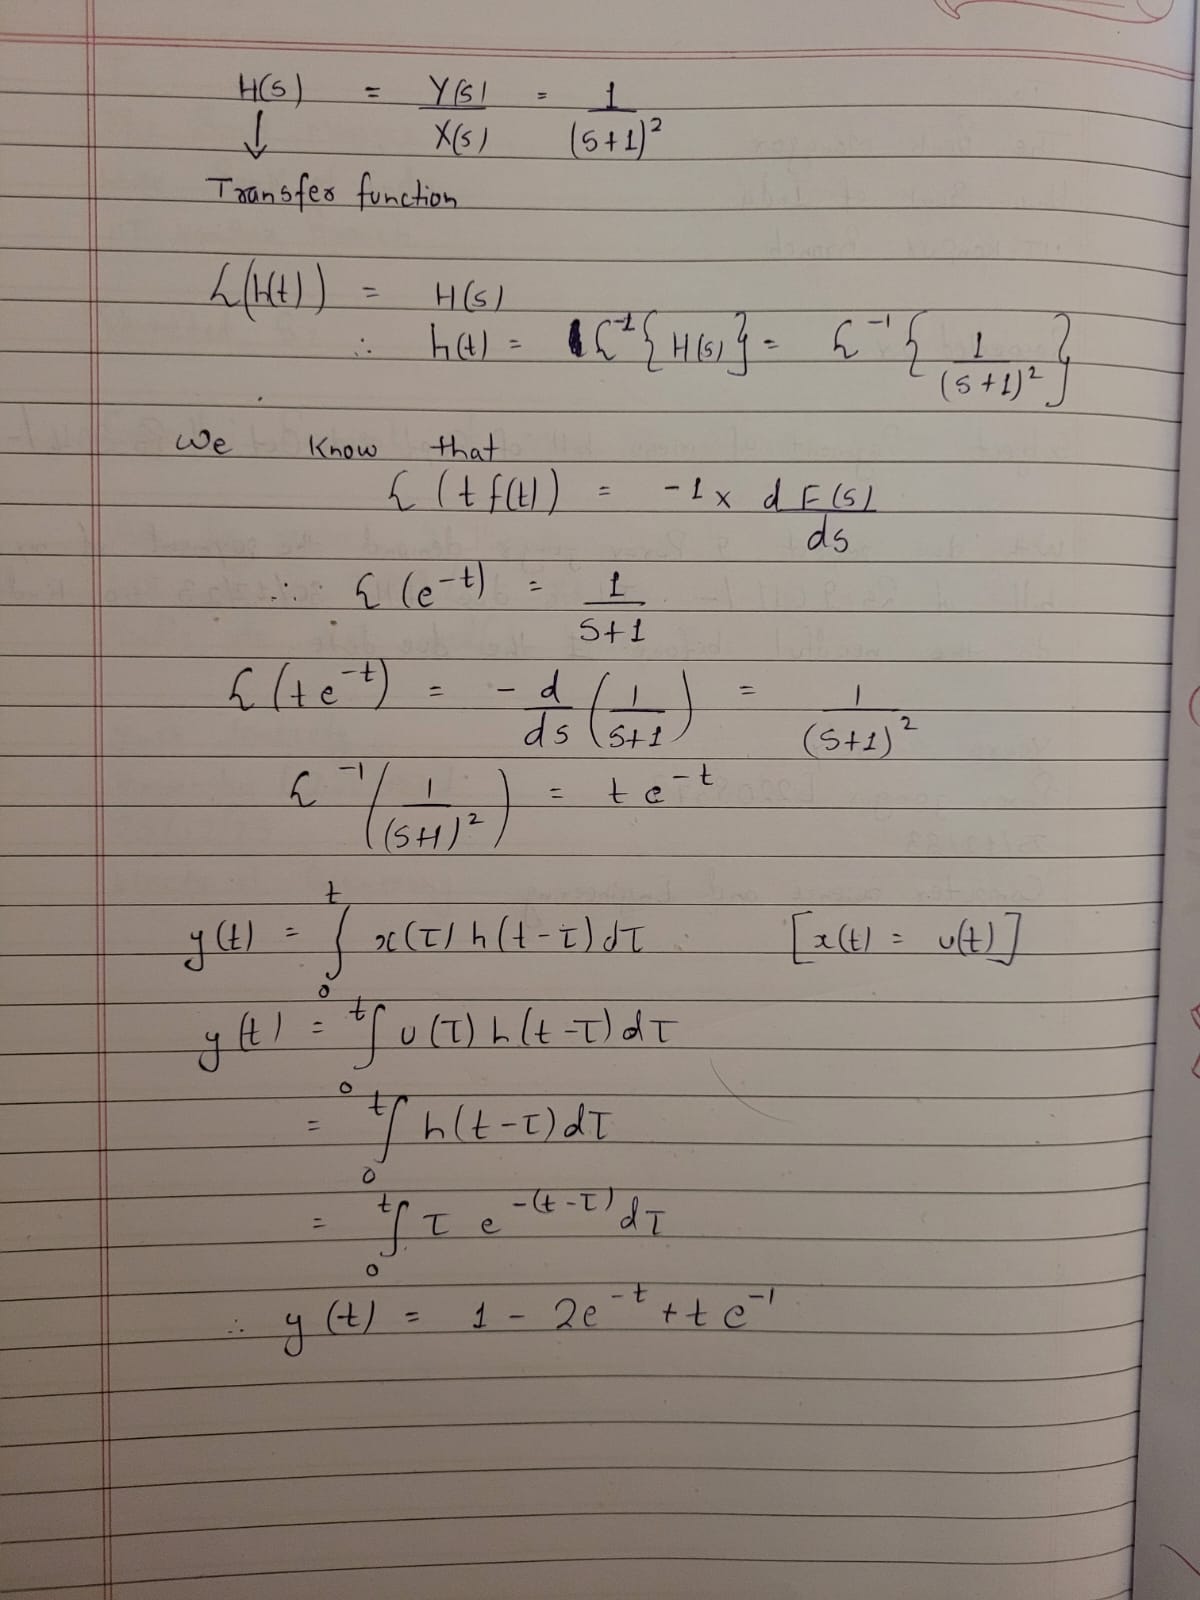 H(s) = Y(s)/X(s) = 1/(s+1)²
↓
Transfer function
L(h(t)) = H(s)
∴ h(t) = L⁻¹{H(s)} = L⁻¹{1/(s+1)²}
We know that
L(t f(t)) = -1 x d F(s)/ds
∴ L(e^-t) = 1/(s+1)
L(t e^-t) = - d/ds (1/(s+1)) = 1/(s+1)²
L⁻¹(1/(s+1)²) = t e^-t
y(t) = ∫₀ᵗ x(τ) h(t-τ) dτ [x(t) = u(t)]
y(t) = ∫₀ᵗ u(τ) h(t-τ) dτ
= ∫₀ᵗ h(t-τ) dτ
= ∫₀ᵗ τ e^-(t-τ) dτ
∴ y(t) = 1 - 2e^-t + t e^-1